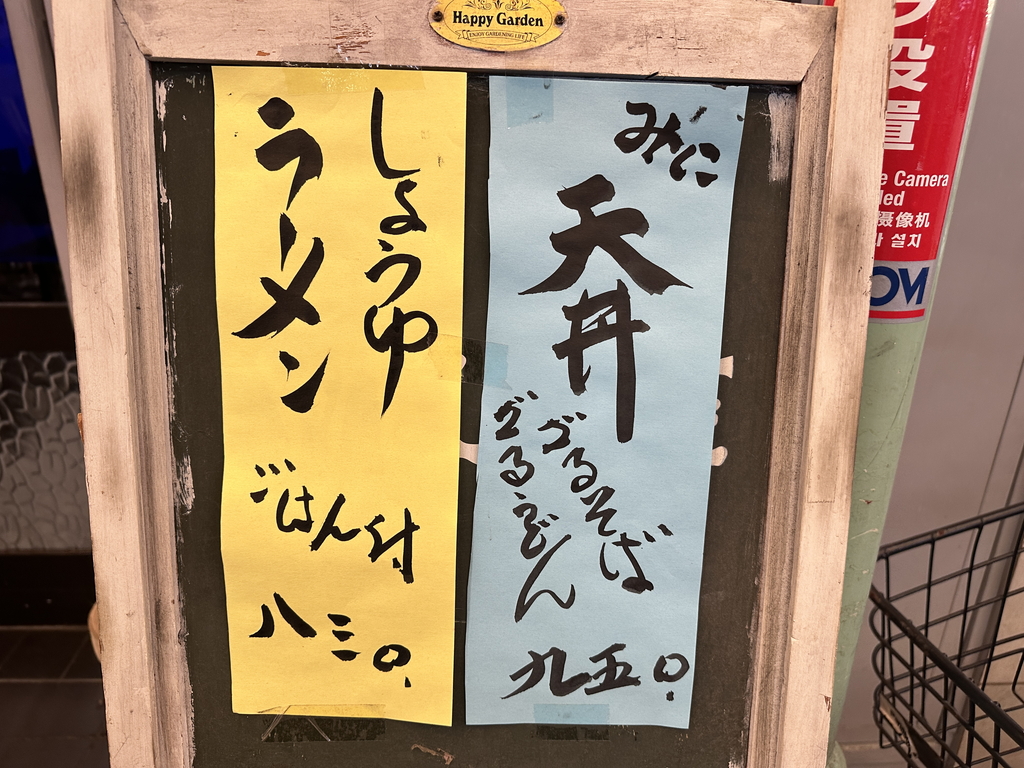 Happy Garden
ENJOY GARDENING LIFE
みに
天丼
ざるそば
ざるうどん
九五〇.
しょうゆ
ラーメン
ごはん付
八三〇.
設置
e Camera
led
摄像机
설치
OM